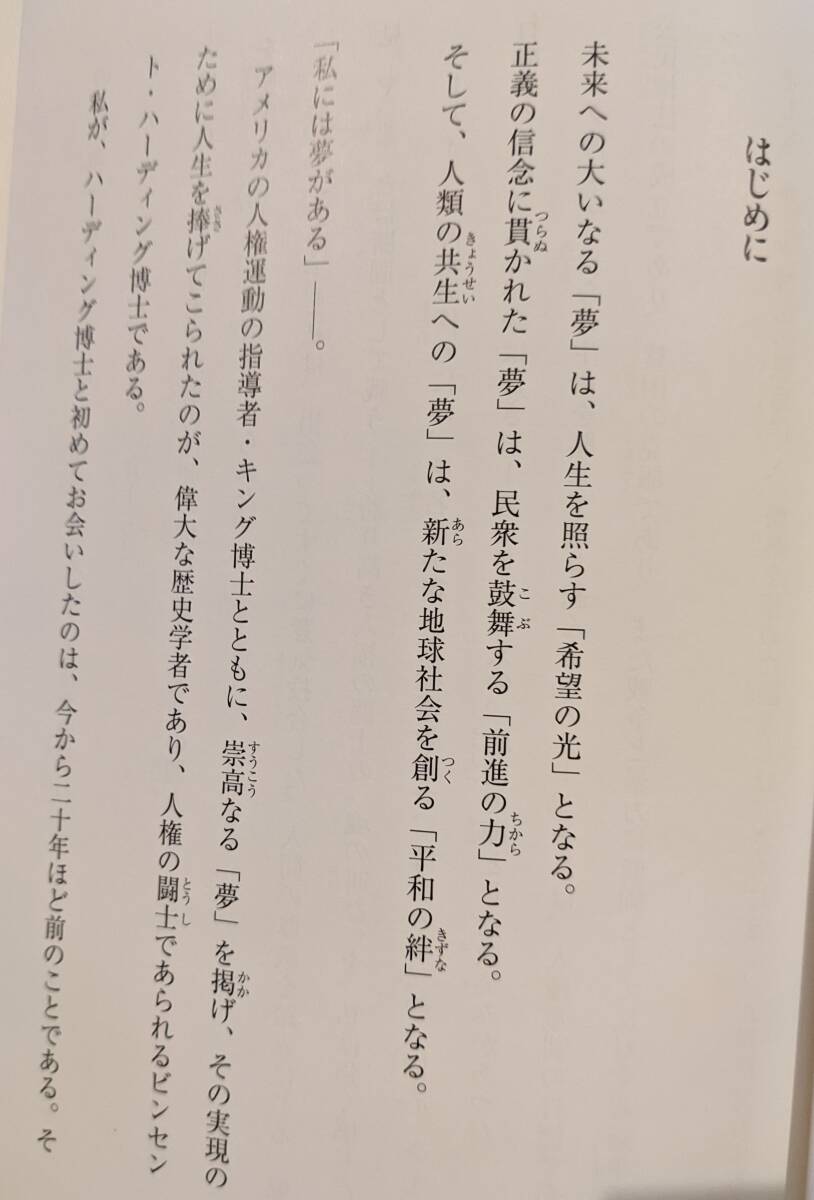 はじめに
未来への大いなる「夢」は、人生を照らす「希望の光」となる。
正義の信念に貫かれた「夢」は、民衆を鼓舞する「前進の力」となる。
そして、人類の共生への「夢」は、新たな地球社会を創る「平和の絆」となる。
「私には夢がある」――。
アメリカの人権運動の指導者・キング博士とともに、崇高なる「夢」を掲げ、その実現の
ために人生を捧げてこられたのが、偉大な歴史学者であり、人権の闘士であられるビンセン
ト・ハーディング博士である。
私が、ハーディング博士と初めてお会いしたのは、今から二十年ほど前のことである。そ